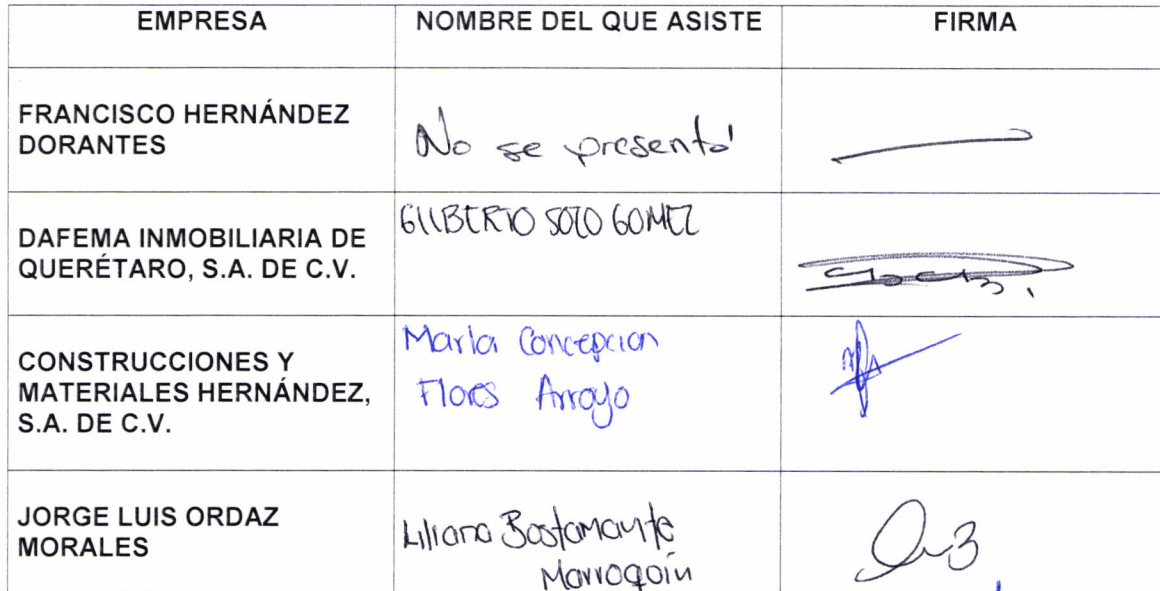 EMPRESA NOMBRE DEL QUE ASISTE FIRMA
FRANCISCO HERNÁNDEZ
DORANTES
No se presentó
DAFEMA INMOBILIARIA DE
QUERÉTARO, S.A. DE C.V.
GILBERTO SOTO GOMEZ
CONSTRUCCIONES Y
MATERIALES HERNÁNDEZ,
S.A. DE C.V.
María Concepcion
Flores Arroyo
JORGE LUIS ORDAZ
MORALES
Liliana Bustamante
Marroquín